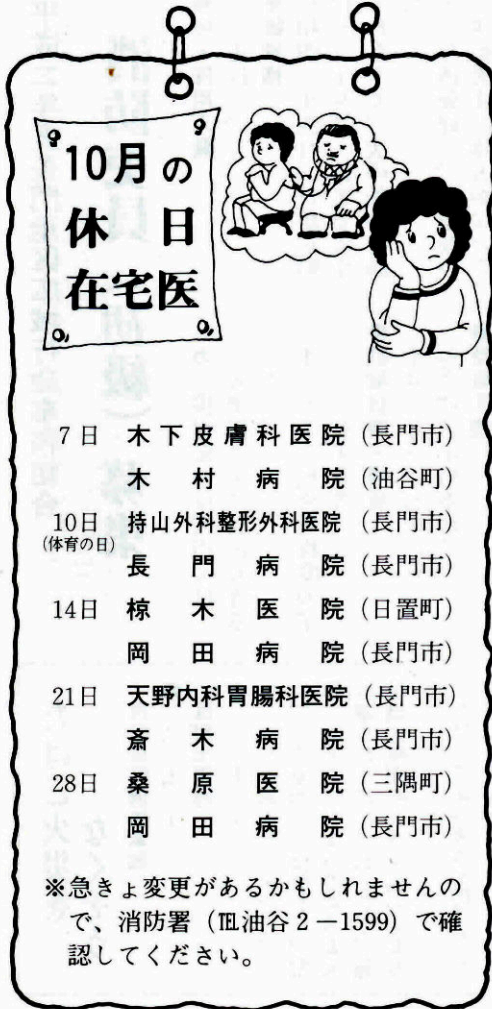 10月の
休日
在宅医
7日 木下皮膚科医院（長門市）
木村病院（油谷町）
10日 持山外科整形外科医院（長門市）
(体育の日)
長門病院（長門市）
14日 椋木医院（日置町）
岡田病院（長門市）
21日 天野内科胃腸科医院（長門市）
斎木病院（長門市）
28日 桑原医院（三隅町）
岡田病院（長門市）
※急きょ変更があるかもしれませんの
で、消防署（℡油谷2－1599）で確
認してください。